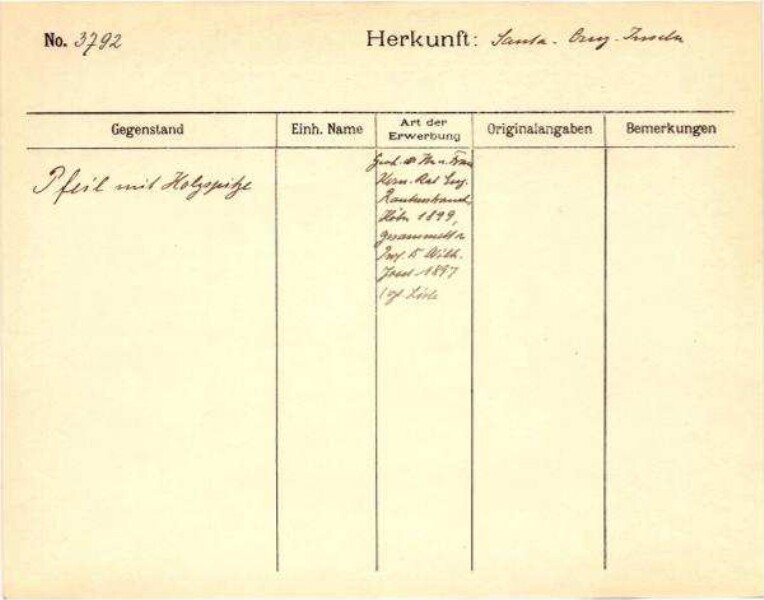 No. 3792 Herkunft: Santa-Cruz-Inseln
Gegenstand Einh. Name Art der Erwerbung Originalangaben Bemerkungen
Pfeil mit Holzspitze
Frau
Kom. Rat Eug.
Rautenstrauch
Köln 1899,
gesammelt v.
Prof. Dr. Wilh.
Joest 1897
Liste